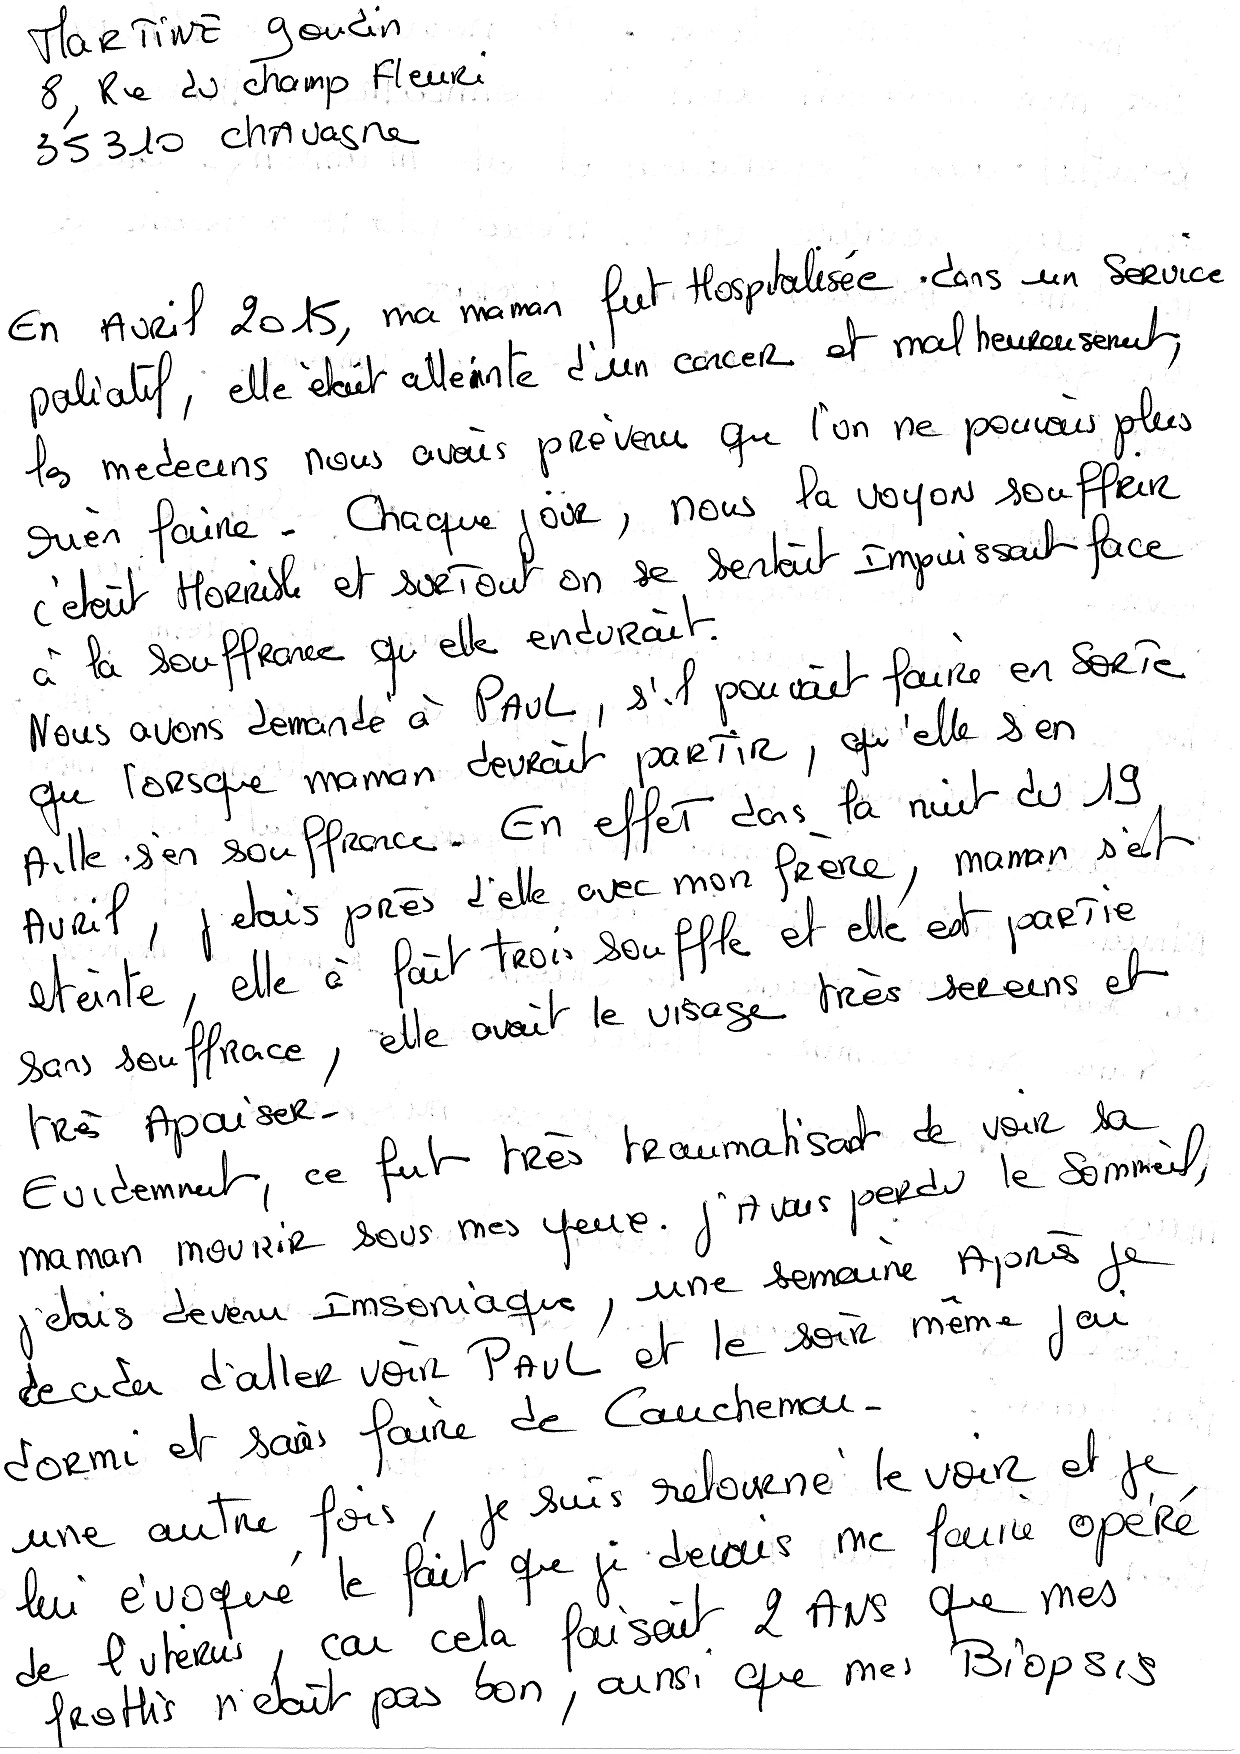 MARTINE goudin
8, Rue du champ Fleuri
35310 CHAVAgne
En AVRIL 2015, ma maman fut Hospitalisée dans un SERVICE
paliatif, elle était atteinte d'un cancer et malheureusement,
les medecins nous avais prévenu que l'on ne pouvais plus
rien faire - Chaque jour, nous la voyon souffrir
c'était Horrible et surtout on se sentait Impuissant face
à la souffrance qu'elle endurait.
Nous avons demandé à PAUL, s'il pouvait faire en Sorte
que lorsque maman devrait partir, qu'elle s'en
Aille s'en souffrance - En effet dans la nuit du 19
Avril, j'etais près d'elle avec mon frère, maman s'et
eteinte, elle à fait trois souffle et elle est partie
sans souffrace, elle avait le visage très sereins et
très Apaiser -
Evidemment, ce fut très traumatisant de voir sa
maman mourir sous mes yeux. J'Avais perdu le Sommeil,
j'etais devenu Imsoniaque, une semaine Après je
decider d'aller voir PAUL et le soir même j'ai
dormi et sans faire de Cauchemar -
une autre fois, je suis retourné le voir et je
lui évoqué le fait que je devais me faire opéré
de l'uterus, car cela faisait 2 ANS que mes
frottis n'etait pas bon, ainsi que mes Biopsis